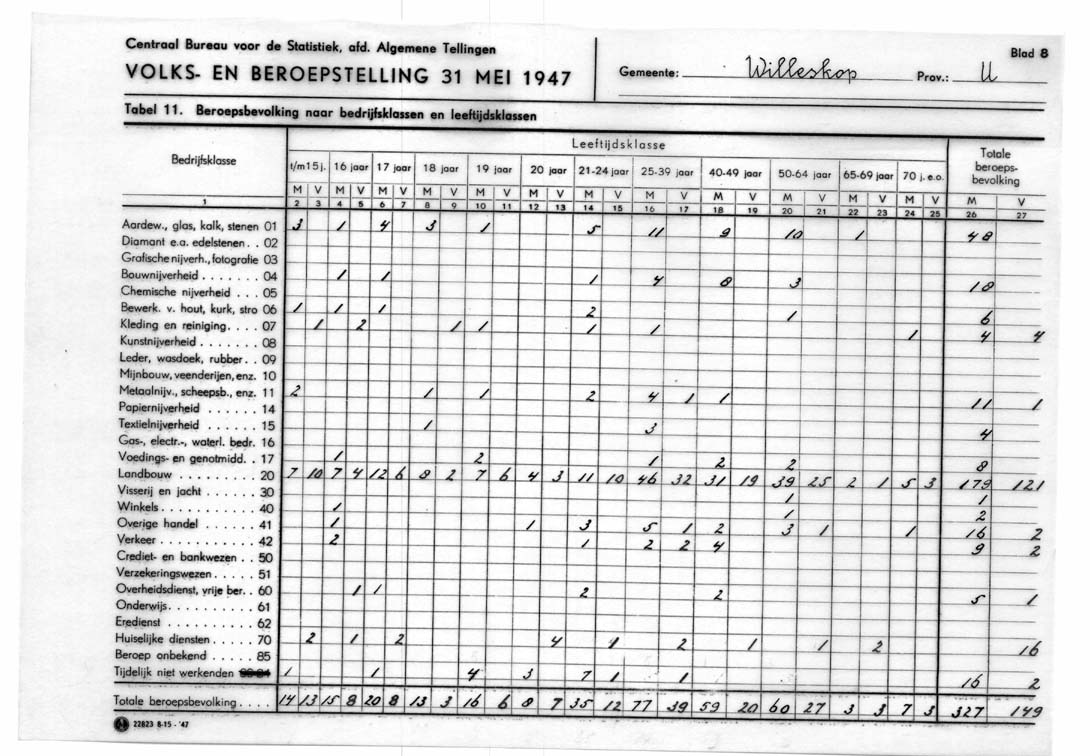 Centraal Bureau voor de Statistiek, afd. Algemene Tellingen
VOLKS- EN BEROEPSTELLING 31 MEI 1947
Gemeente: Willeskop Prov.: U
Blad 8
Tabel 11. Beroepsbevolking naar bedrijfsklassen en leeftijdsklassen
Bedrijfsklasse Leeftijdsklasse Totale beroeps-bevolking
t/m15 j. 16 jaar 17 jaar 18 jaar 19 jaar 20 jaar 21-24 jaar 25-39 jaar 40-49 jaar 50-64 jaar 65-69 jaar 70 j. e.o.
M V M V M V M V M V M V M V M V M V M V M V M V M V
1 2 3 4 5 6 7 8 9 10 11 12 13 14 15 16 17 18 19 20 21 22 23 24 25 26 27
Aardew., glas, kalk, stenen 01 3 1 4 3 1 5 11 9 10 1 48
Diamant e.a. edelstenen . . 02
Grafische nijverh., fotografie 03
Bouwnijverheid . . . . . . . 04 1 1 1 4 8 3 18
Chemische nijverheid . . . 05
Bewerk. v. hout, kurk, stro 06 1 1 1 2 1 6
Kleding en reiniging . . . . 07 1 2 1 1 1 1 1 4 4
Kunstnijverheid . . . . . . . 08
Leder, wasdoek, rubber . . 09
Mijnbouw, veenderijen, enz. 10
Metaalnijv., scheepsb., enz. 11 2 1 1 2 4 1 1 11 1
Papiernijverheid . . . . . . 14
Textielnijverheid . . . . . . 15 1 3 4
Gas-, electr.-, waterl. bedr. 16
Voedings- en genotmidd. . 17 1 2 1 2 2 8
Landbouw . . . . . . . . . 20 7 10 7 4 12 6 8 2 7 6 4 3 11 10 46 32 31 19 39 25 2 1 5 3 179 121
Visserij en jacht . . . . . . 30 1 1
Winkels . . . . . . . . . . . 40 1 1 2
Overige handel . . . . . . 41 1 1 3 5 1 2 3 1 1 16 2
Verkeer . . . . . . . . . . . 42 2 1 2 2 4 9 2
Crediet- en bankwezen . . 50
Verzekeringswezen . . . . . 51
Overheidsdienst, vrije ber. . 60 1 1 2 2 5 1
Onderwijs . . . . . . . . . . 61
Eredienst . . . . . . . . . . 62
Huiselijke diensten . . . . . 70 2 1 2 4 1 2 1 1 2 16
Beroep onbekend . . . . . 85
Tijdelijk niet werkenden 1 1 4 3 7 1 1 16 2
Totale beroepsbevolking . . . . 14 13 15 8 20 8 13 3 16 6 8 7 35 12 77 39 59 20 60 27 3 3 7 3 327 149
22823 8-15 - '47